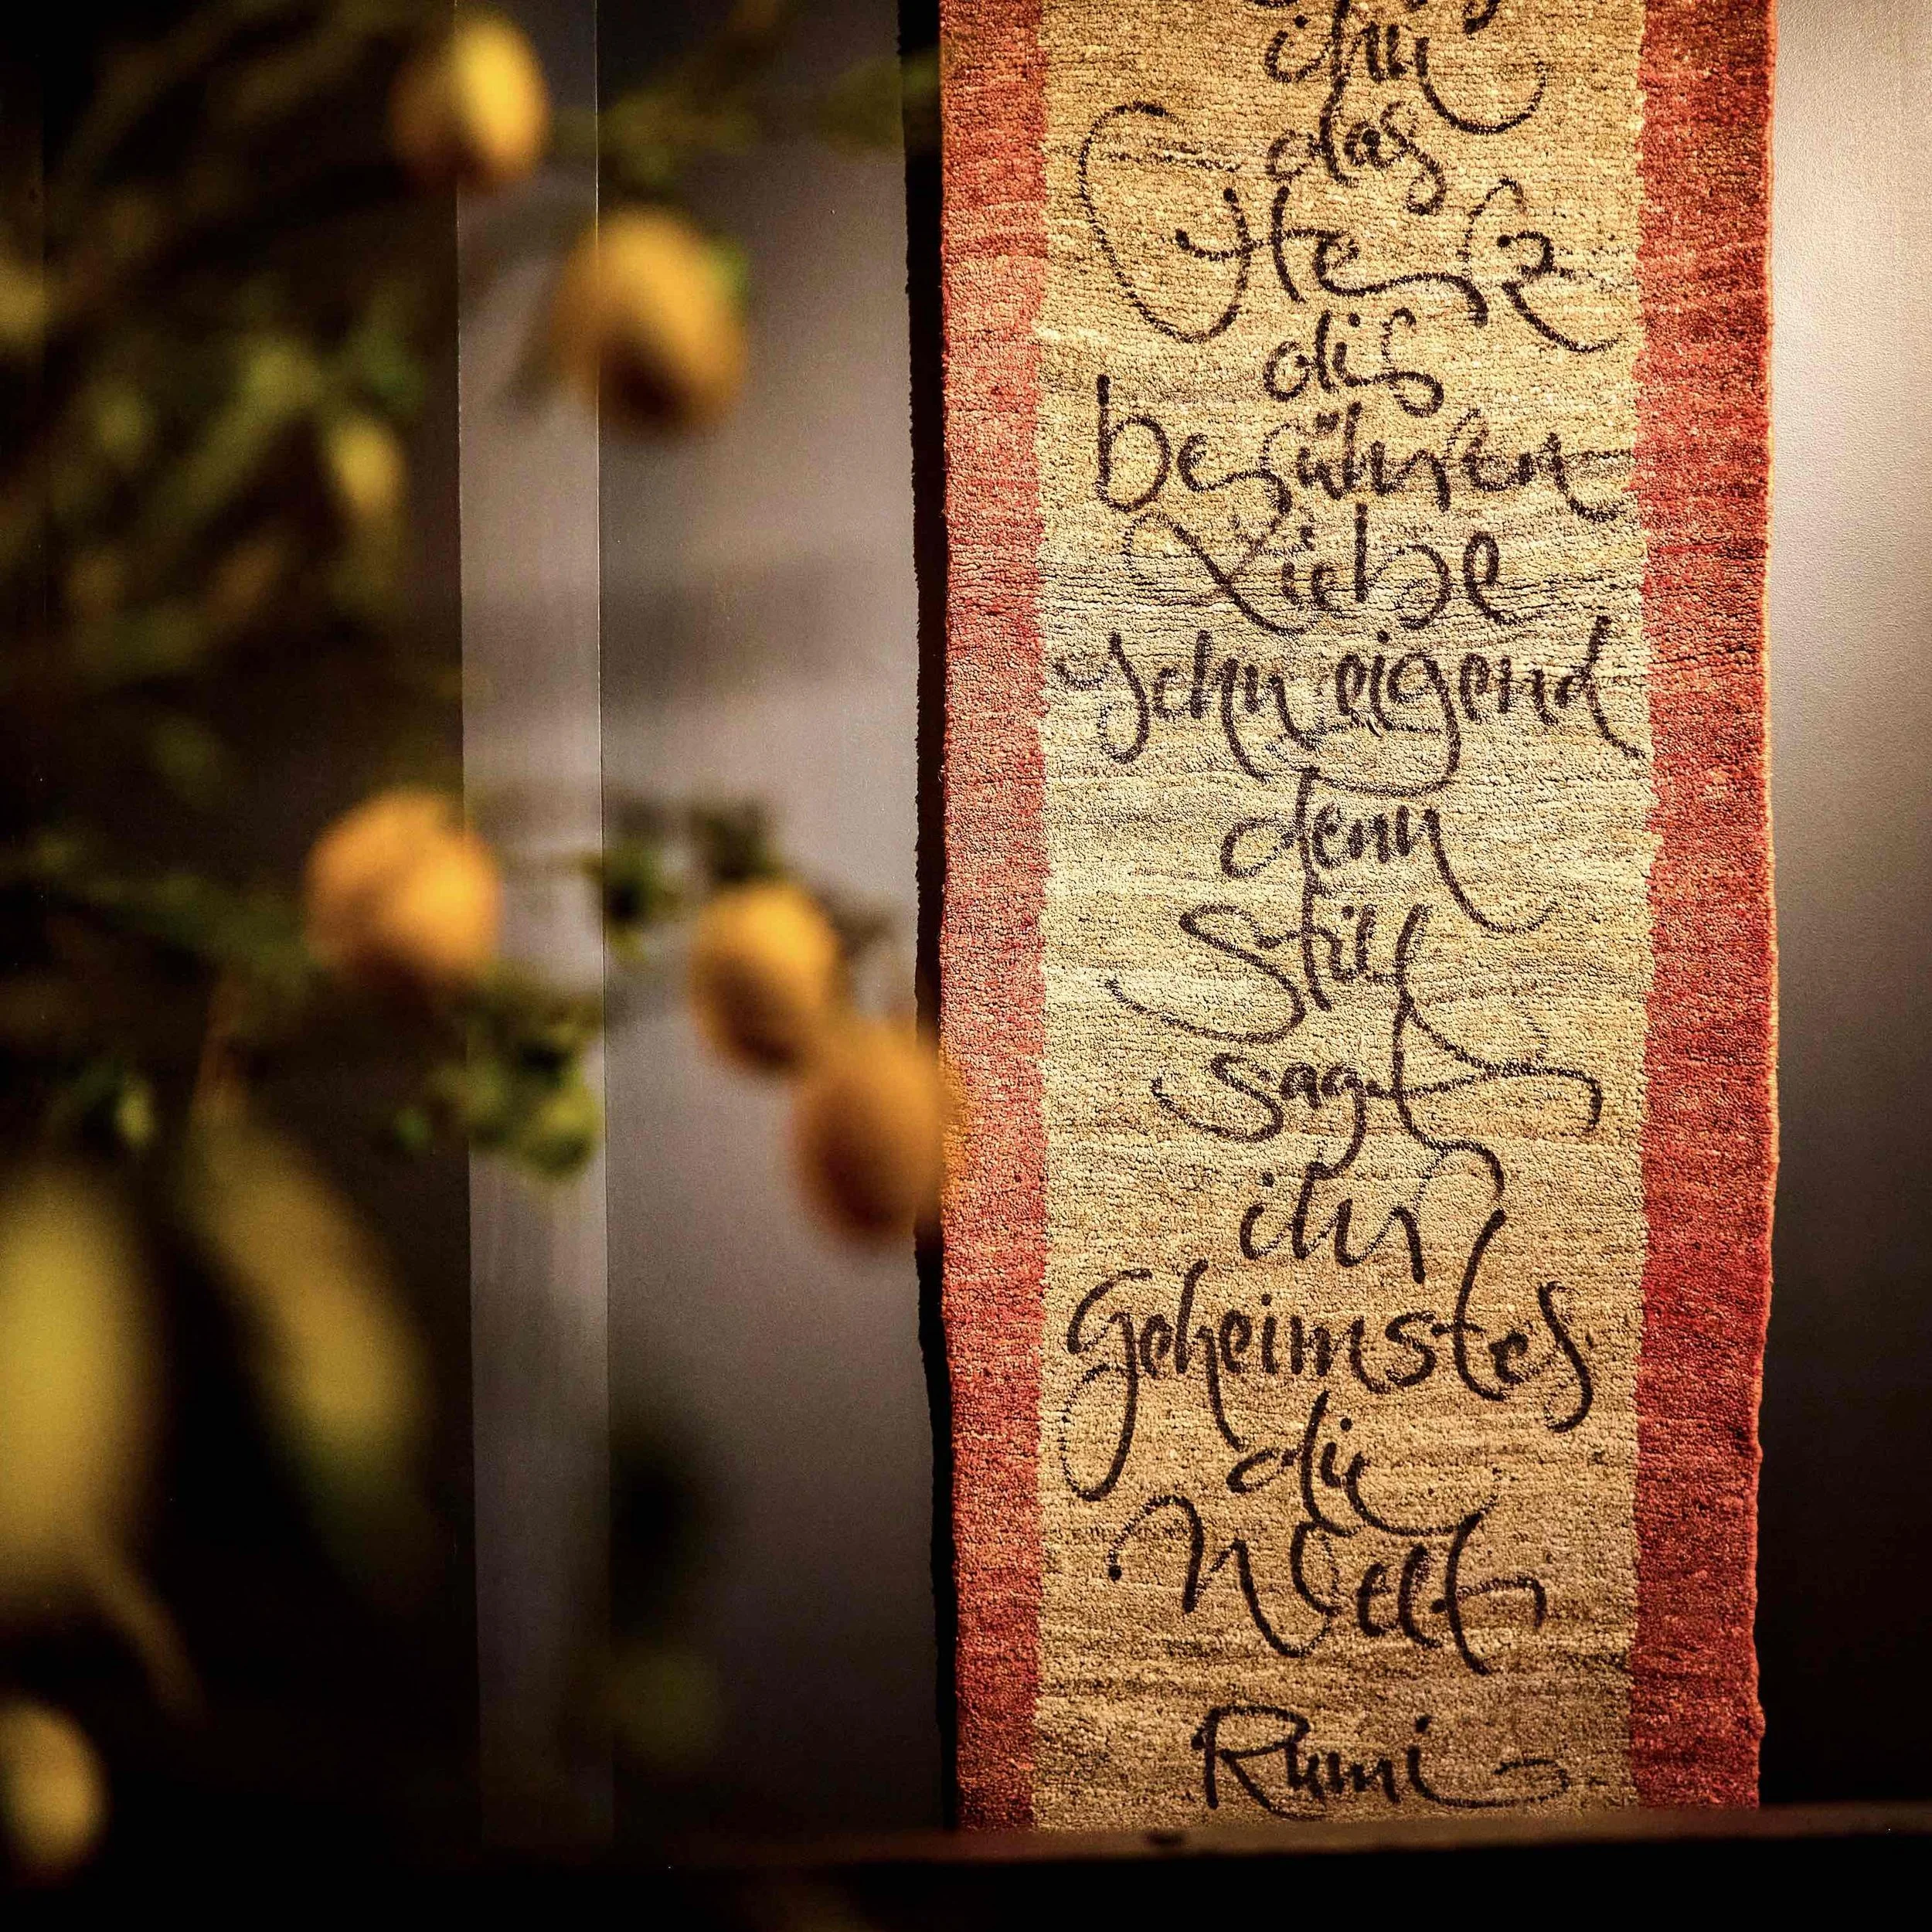 ihn
das
Herz
dir
berühren
Liebe
schweigend
denn
still
sagt
ihr
Geheimstes
die
Welt
Rumi